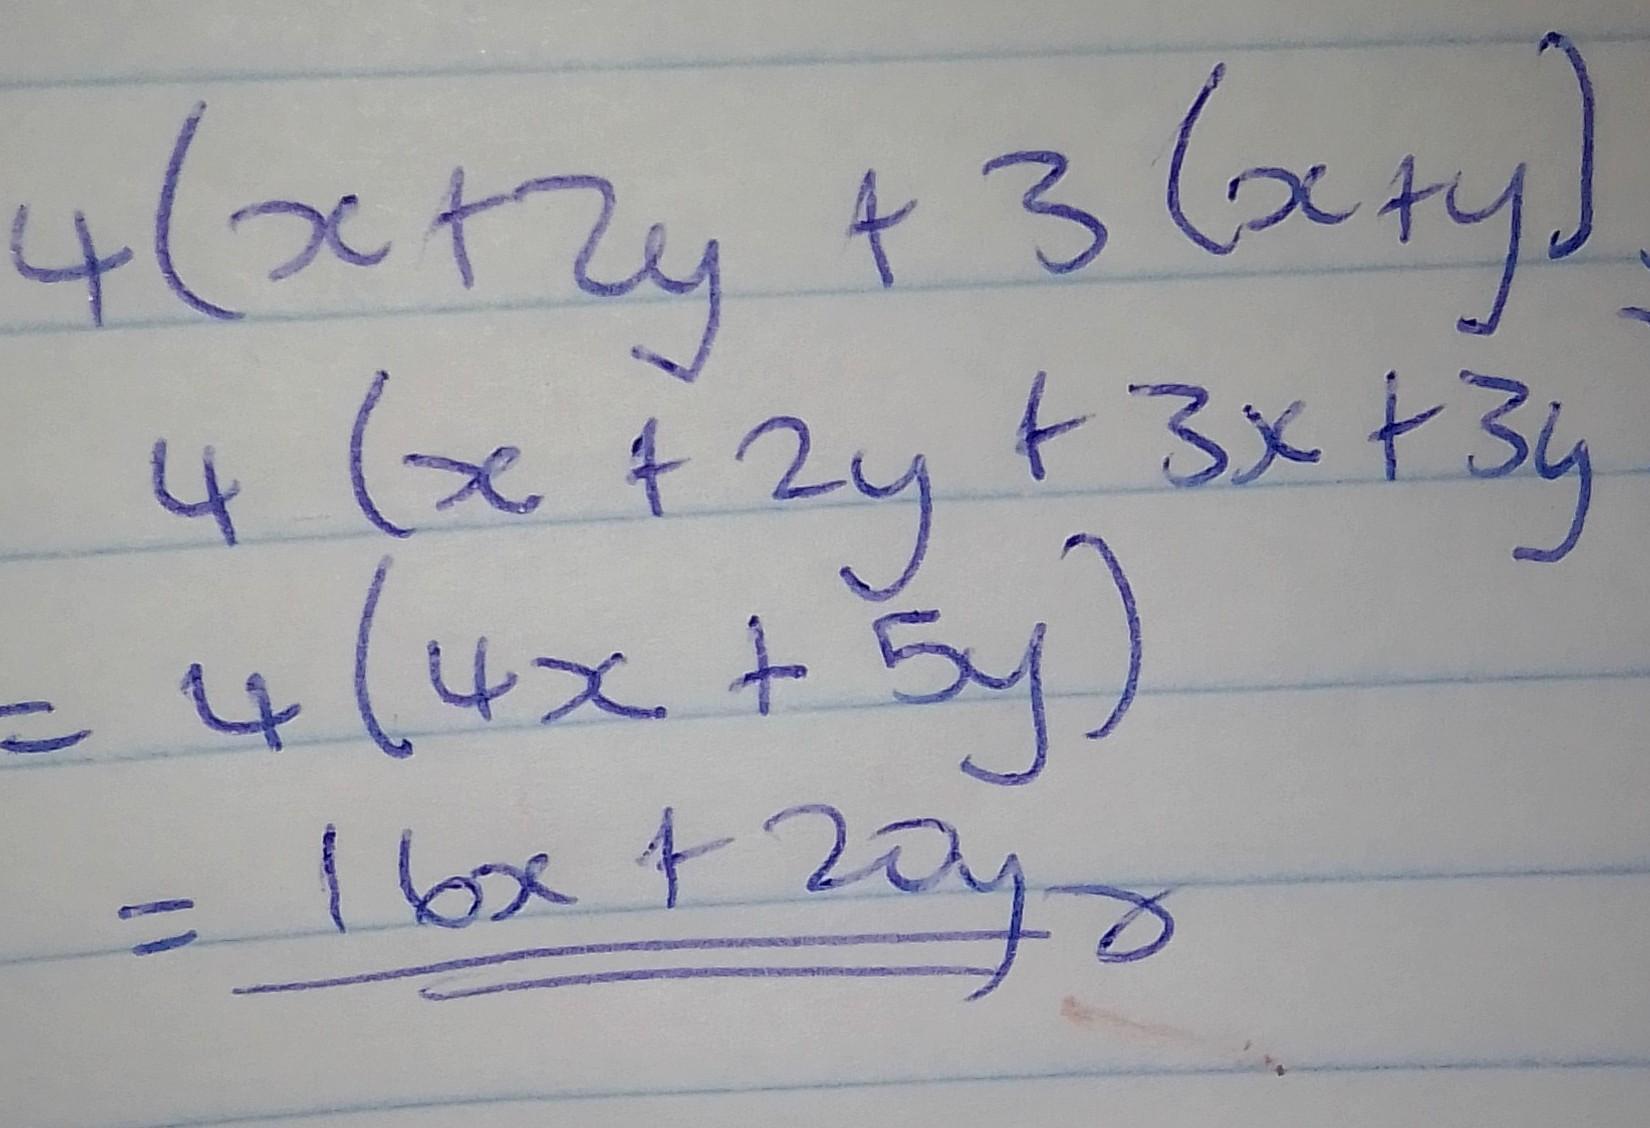 4(x+2y + 3(x+y) =
4 (x + 2y + 3x + 3y
= 4(4x + 5y)
= 16x + 20y